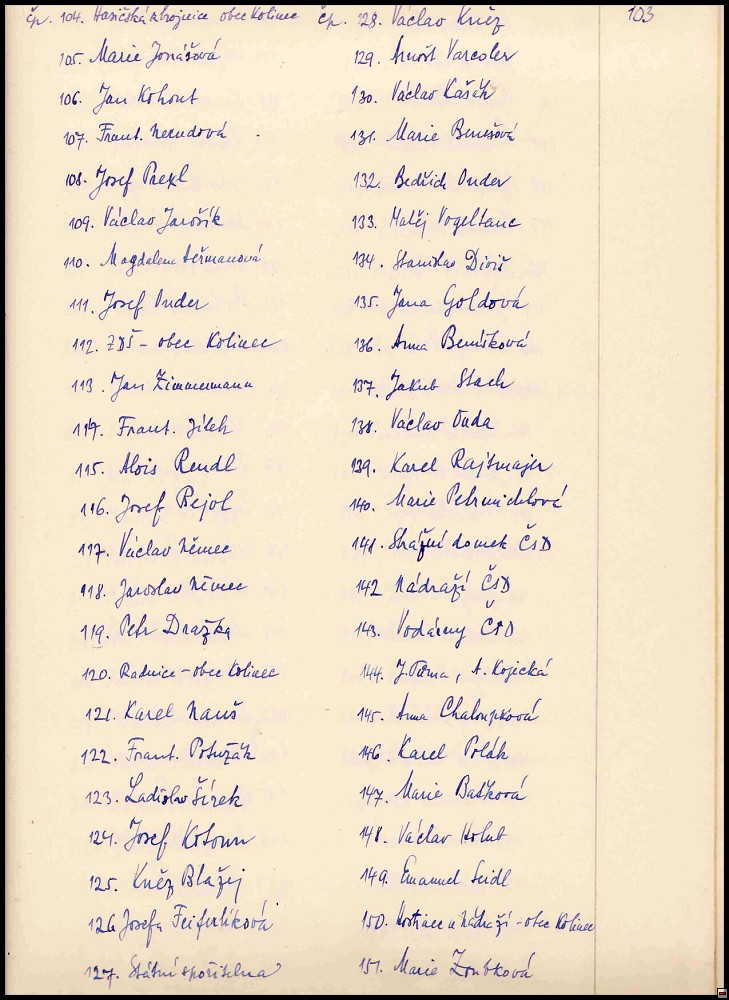 103
čp. 104. Hasičská zbrojnice obec Kolinec
105. Marie Jonášová
106. Jan Kohout
107. Frant. Nerudová
108. Josef
109. Václav Jarošík
110. Magdalena Heřmanová
111. Josef Onder
112. ZDŠ - obec Kolinec
113. Jan Zimmermann
114. Frant. Jílek
115. Alois Rendl
116. Josef Rejol
117. Václav Němec
118. Jaroslav Němec
119. Petr Dražka
120. Radnice - obec Kolinec
121. Karel Nauš
122. Frant. Potužák
123. Ladislav Šírek
124. Josef
125. Kněz Blažej
126. Josefa Feiferlíková
127. Státní spořitelna
čp. 128. Václav Kněz
129. Arnošt Varcoler
130. Václav Kašák
131. Marie Benešová
132. Bedřich Onder
133. Matěj Vogeltanc
134. Stanislav Diviš
135. Jana Goldová
136. Anna Benešková
137. Jakub Stach
138. Václav Duda
139. Karel Rajtmajer
140. Marie Petrmichlová
141. Strážní domek ČSD
142 Nádraží ČSD
143. Vodárny ČSD
144. J. Tůma, A. Kojická
145. Anna Chaloupková
146. Karel Polák
147. Marie Bašková
148. Václav Holub
149. Emanuel Seidl
150. Hostinec u nádraží - obec Kolinec
151. Marie Zoubková